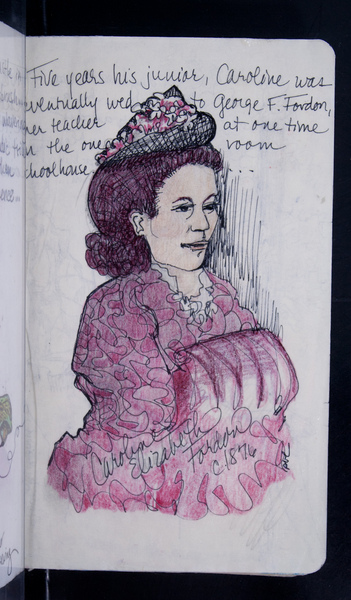 Five years his junior, Caroline was
eventually wed to George F. Fordon,
her teacher at one time
in the one room
schoolhouse....
Caroline
Elizabeth
Fordon
c 1876